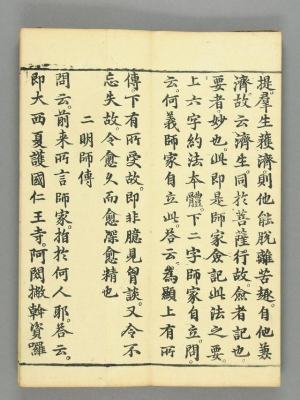 提。羣生獲濟則他能脫離苦趣。自他兼
濟故云濟生。同於菩薩行故。僉者記也。
要者妙也。此即是師家僉記此法之要。
上六字約法本體。下二字師家自立。問
云。何義師家自立此。荅云。爲顯上有所
傳下有所受故。即非臆見胷談。又令不
忘失故。令愈久而愈深愈精也
二明師傳
問云。前來所言師家指於何人耶。荅云。
即大西夏護國仁王寺。阿闍撇幹資囉